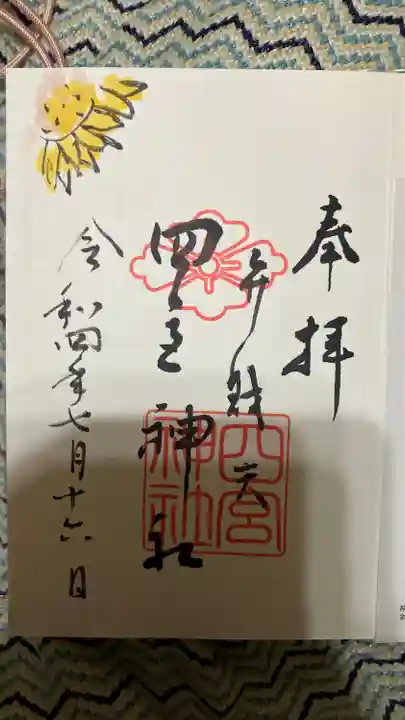 奉拝
弁財天
四宮神社
四宮神社
令和四年七月十六日